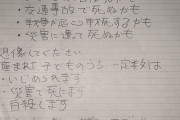 ・交通事故で死ぬかも
・戦争が起こり戦死するかも
・災害に遭って死ぬかも
想像してください
産まれた子どものうち一定数は
・いじめられます
・災害で死にます
・自殺します